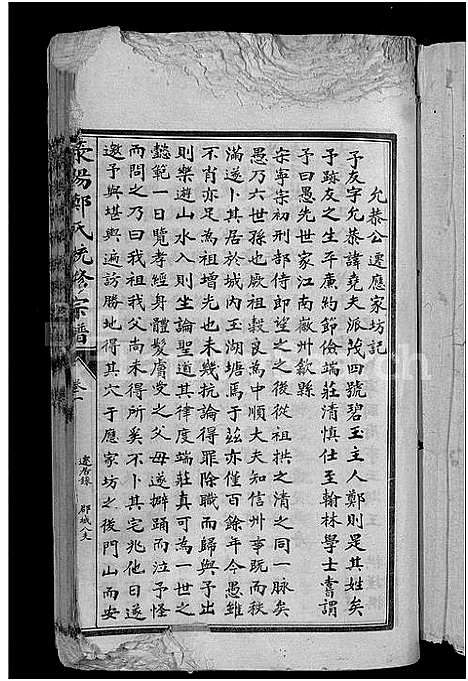 允恭公遷應家坊記
予友字允恭諱堯夫派茂四號碧玉主人鄭則是其姓矣
予跡友之生平廣約節儉端莊清慎仕至翰林學士嘗謂
予曰愚先世家江南徽州歙縣
宋寧宗初刑部侍郎望之之後從祖拱之清之同一脉矣
愚乃六世孫也厥祖穀良為中順大夫知信州事既而秩
滿遂卜其居於城內玉湖塘焉于茲亦僅百餘年今愚雖
不肖亦足為祖增光也未幾抗論得罪除職而歸與予出
則樂遊山水入則坐論聖道其律度端莊真可為一世之
懿範一日覽孝經身體髮膚受之父母遂擗踊而泣予怪
而問之乃曰我祖我父尚未得所奚不卜其宅兆他日遂
邀予與堪輿遍訪勝地得其穴于應家坊之後門山而安
滎陽鄭氏統修宗譜
卷一
遷居錄
郡城八支